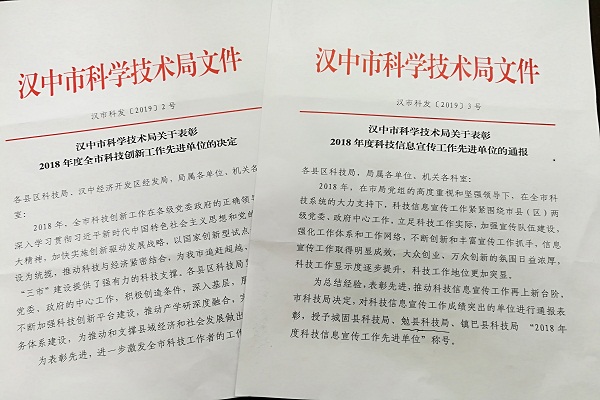 汉中市科学技术局文件
汉市科发〔2019〕2号
汉中市科学技术局关于表彰
2018年度全市科技创新工作先进单位的决定
各县区科技局、汉中经济开发区经发局，局属各单位、机关各科
室：
2018年，全市科技创新工作在各级党委政府的正确领导
深入学习贯彻习近平新时代中国特色社会主义思想和党的
大精神，加快实施创新驱动发展战略，以国家创新型试点
设为统揽，推动科技与经济紧密结合，为我市追赶超越，
“三市”建设提供了强有力的科技支撑。各县区科技局
党委、政府的中心工作，积极创造条件，深入基层，
不断加强科技创新平台建设，推动产学研深度融合，
务体系建设，为推动和支撑县域经济和社会发展做出
为表彰先进，进一步激发全市科技工作者的工作
汉中市科学技术局文件
汉市科发〔2019〕3号
汉中市科学技术局关于表彰
2018年度科技信息宣传工作先进单位的通报
各县区科技局，局属各单位、机关各科室：
2018年，在市局党组的高度重视和坚强领导下，在全市科
技系统的大力支持下，科技信息宣传工作紧紧围绕市县（区）两
级党委、政府中心工作，立足科技工作实际，加强宣传队伍建设，
强化工作体系和工作网络，不断创新和丰富宣传工作抓手，信息
宣传工作取得明显成效，大众创业、万众创新的氛围日益浓厚，
科技工作显示度逐步提升，科技工作地位更加突显。
为总结经验，表彰先进，推动科技信息宣传工作再上新台阶，
市科技局决定，对科技信息宣传工作成绩突出的单位进行通报表
彰，授予城固县科技局、勉县科技局、镇巴县科技局“2018年
度科技信息宣传工作先进单位”称号。